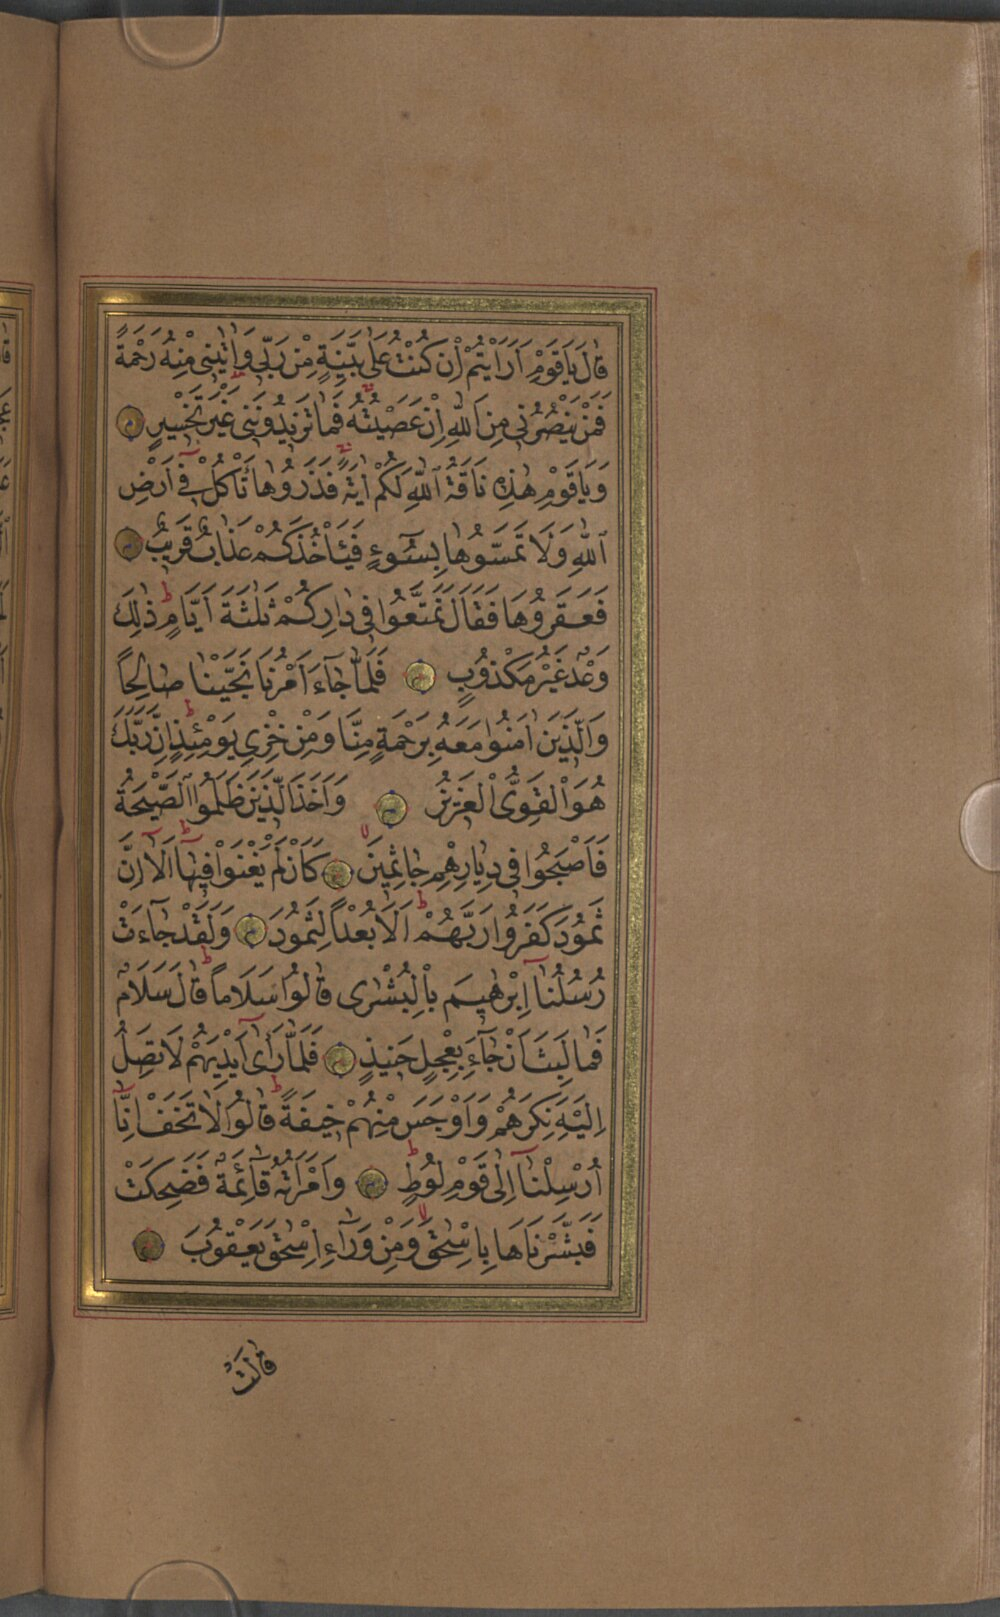 قَالَ يَاقَوْمِ اَرَاَيْتُمْ اِنْ كُنْتُ عَلٰى بَيِّنَةٍ مِنْ رَبّى وَاٰتٰينِى مِنْهُ رَحْمَةً
فَمَنْ يَنْصُرُنِى مِنَ اللّٰهِ اِنْ عَصَيْتُهُ فَمَا تَزِيدُونَنِى غَيْرَ تَخْسِيرٍ
وَيَاقَوْمِ هٰذِهِ نَاقَةُ اللّٰهِ لَكُمْ اٰيَةً فَذَرُوهَا تَأْكُلْ فِى اَرْضِ
اللّٰهِ وَلَا تَمَسُّوهَا بِسُوٓءٍ فَيَأْخُذَكُمْ عَذَابٌ قَرِيبٌ
فَعَقَرُوهَا فَقَالَ تَمَتَّعُوا فِى دَارِكُمْ ثَلٰثَةَ اَيَّامٍ ذٰلِكَ
وَعْدٌ غَيْرُ مَكْذُوبٍ فَلَمَّا جَآءَ اَمْرُنَا نَجَّيْنَا صَالِحًا
وَالَّذِينَ اٰمَنُوا مَعَهُ بِرَحْمَةٍ مِنَّا وَمِنْ خِزْىِ يَوْمِئِذٍ اِنَّ رَبَّكَ
هُوَ الْقَوِىُّ الْعَزِيزُ وَاَخَذَ الَّذِينَ ظَلَمُوا الصَّيْحَةُ
فَاَصْبَحُوا فِى دِيَارِهِمْ جَاثِمِينَ كَاَنْ لَمْ يَغْنَوْا فِيهَا اَلَآ اِنَّ
ثَمُودَ كَفَرُوا رَبَّهُمْ اَلَا بُعْدًا لِثَمُودَ وَلَقَدْ جَآءَتْ
رُسُلُنَآ اِبْرٰهِيمَ بِالْبُشْرٰى قَالُوا سَلَامًا قَالَ سَلَامٌ
فَمَا لَبِثَ اَنْ جَآءَ بِعِجْلٍ حَنِيذٍ فَلَمَّا رَاٰىٓ اَيْدِيَهُمْ لَا تَصِلُ
اِلَيْهِ نَكِرَهُمْ وَاَوْجَسَ مِنْهُمْ خِيفَةً قَالُوا لَا تَخَفْ اِنَّآ
اُرْسِلْنَآ اِلٰى قَوْمِ لُوطٍ وَامْرَاَتُهُ قَآئِمَةٌ فَضَحِكَتْ
فَبَشَّرْنَاهَا بِاِسْحٰقَ وَمِنْ وَرَآءِ اِسْحٰقَ يَعْقُوبَ
قَالَتْ